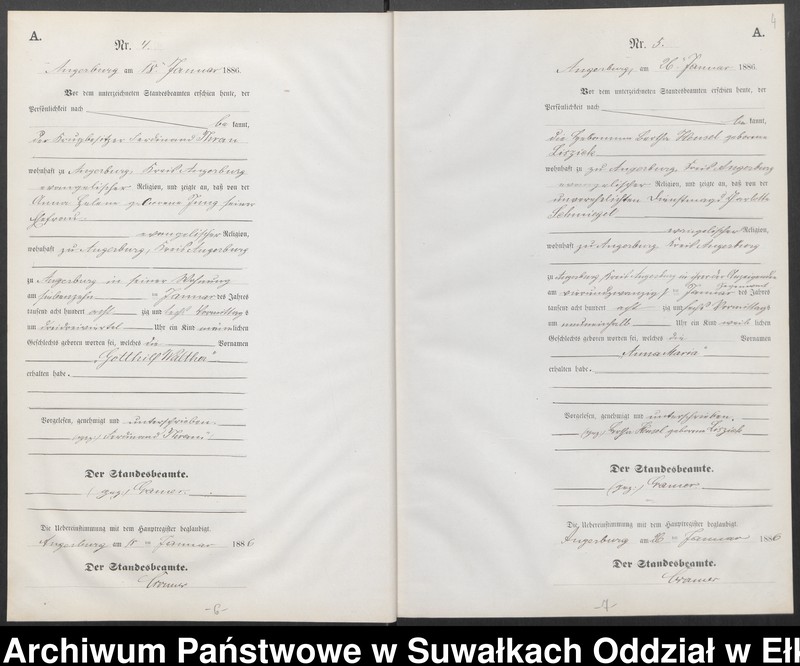 A.
Nr. 4.
Angerburg am 18ten Januar 1886.
Vor dem unterzeichneten Standesbeamten erschien heute, der
Persönlichkeit nach
be kannt,
der Krugbesitzer Ferdinand
wohnhaft zu Angerburg, Kreis Angerburg
evangelischer Religion, und zeigte an, daß von der
Anna Helene geborene Jung seiner
Ehefrau
evangelischer Religion,
wohnhaft zu Angerburg, Kreis Angerburg
zu Angerburg in seiner Wohnung
am siebenzehn ten Januar des Jahres
tausend acht hundert acht zig und sechs Vormittags
um dreiviertel Uhr ein Kind männlichen
Geschlechts geboren worden sei, welches die Vornamen
„Gotthilf Walther“
erhalten habe.
Vorgelesen, genehmigt und unterschrieben.
(gez.) Ferdinand
Der Standesbeamte.
(gez.) Cramer.
Die Uebereinstimmung mit dem Hauptregister beglaubigt
Angerburg am 18ten Januar 1886
Der Standesbeamte.
Cramer
-6-
4
A.
Nr. 5.
Angerburg, am 26ten Januar 1886.
Vor dem unterzeichneten Standesbeamten erschien heute, der
Persönlichkeit nach
be kannt,
die Hebamme Bertha Hensel geborene
wohnhaft zu Angerburg, Kreis Angerburg
evangelischer Religion, und zeigte an, daß von der
unverehelichten Dienstmagd
evangelischer Religion,
wohnhaft zu Angerburg Kreis Angerburg
zu Angerburg Kreis Angerburg in
am vierundzwanzigsten Januar des Jahres
tausend acht hundert acht zig und sechs Vormittags
um neuneinhalb Uhr ein Kind weib lichen
Geschlechts geboren worden sei, welches die Vornamen
„Anna Maria“
erhalten habe.
Vorgelesen, genehmigt und unterschrieben.
(gez.) Bertha Hensel geborene
Der Standesbeamte.
(gez.) Cramer.
Die Uebereinstimmung mit dem Hauptregister beglaubigt
Angerburg am 26ten Januar 1886
Der Standesbeamte.
Cramer
-7-
Archiwum Państwowe w Suwałkach Oddział w Ełk